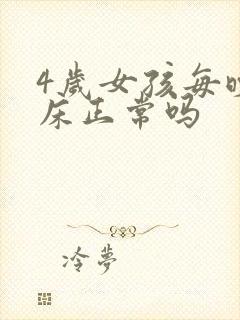 4歲女孩每晚
床正常吗
冷夢